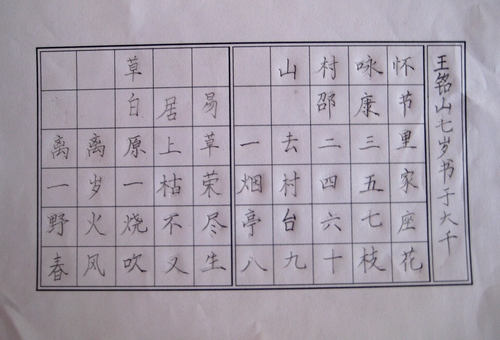 草
白居易
离离原上草
一岁一枯荣
野火烧不尽
春风吹又生
山村咏怀
邵康节
一去二三里
烟村四五家
亭台六七座
八九十枝花
王铭山七岁书于大千